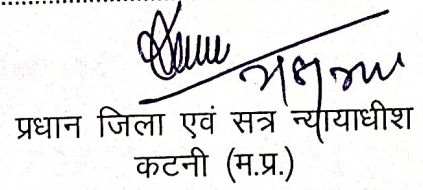 प्रधान जिला एवं सत्र न्यायाधीश
कटनी (म.प्र.)